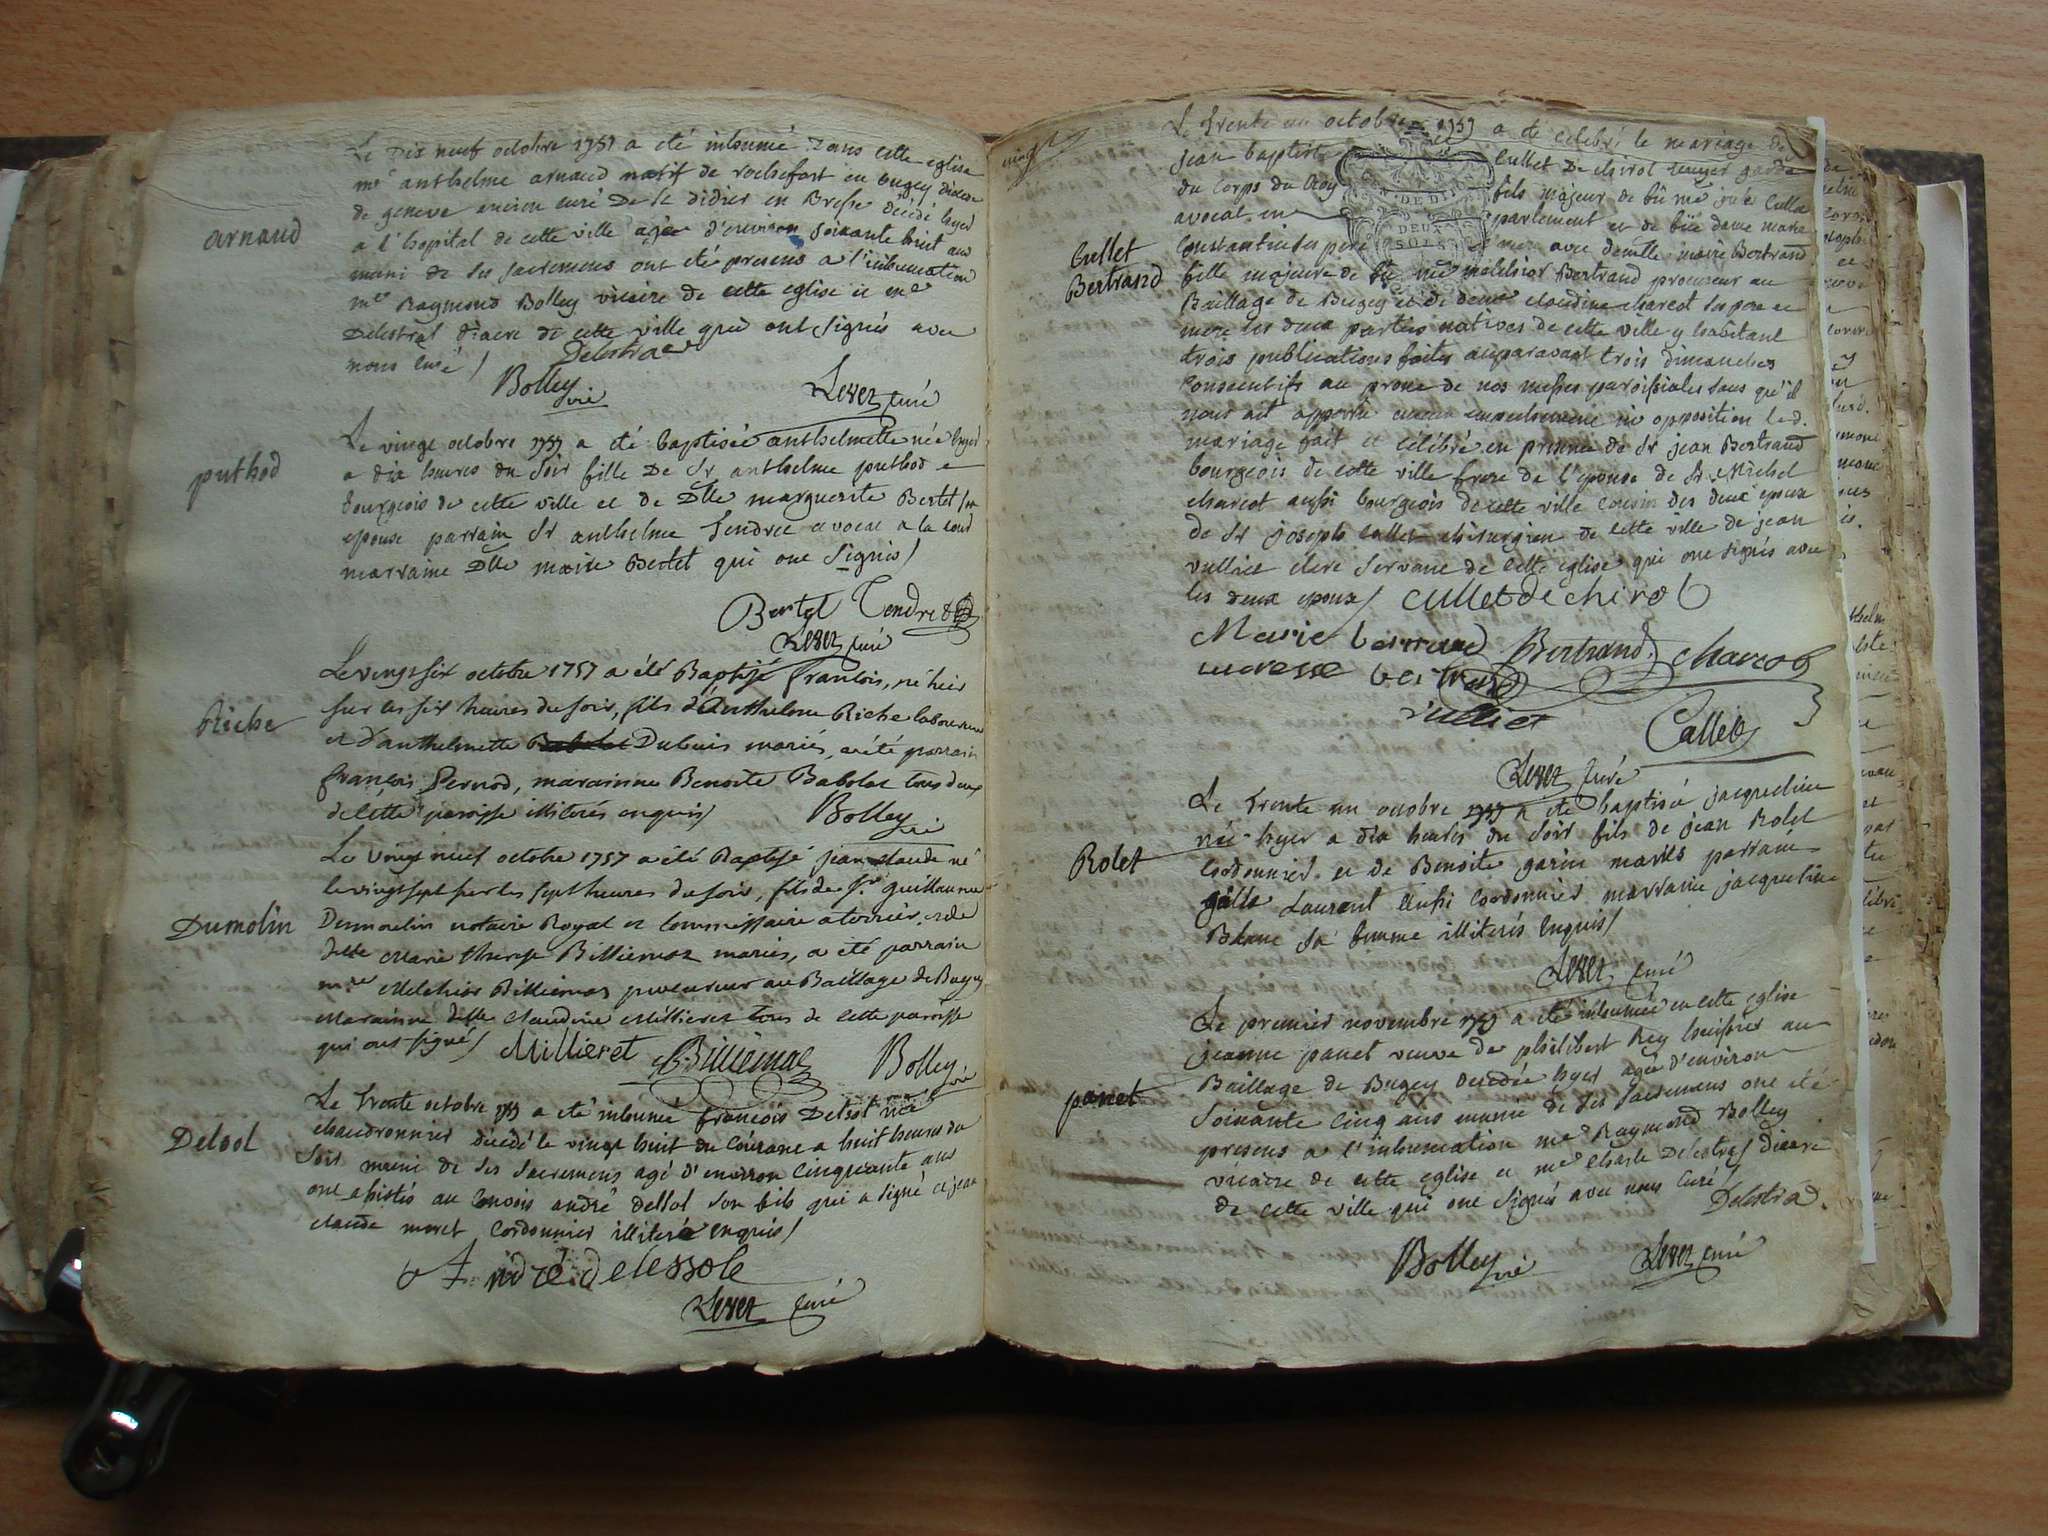 Le Dix neuf octobre 1757 a été inhumé Dans cette eglise
me anthelme arnaud natif de rochefort en bugey diocese
de geneve ancien curé De st didier en Bresse décédé hyer
arnaud
a l'hopital de cette ville agée d'environ soixante huit ans
muni de ses sacremens ont été presens a l'inhumation
mre Raymond Bolley vicaire de cette eglise et me
Delestral diacre de cette ville qui ont signés avec
nous curé /
Delestra
Bolley vic
Level curé
Le vingt octobre 1757 a été baptisée anthelmette née hyer
puthod
a dix heures du soir fille De Sr anthelme puthod
bourgeois de cette ville et de Dlle marguerite Bertet sa
epouse parrain Sr anthelme Tendret avocat a la cour
marraine Dlle marie Bertet qui ont signés /
Bertet Tendret
curé
Le vingt six octobre 1757 a été Baptisé francois, né hier
sur les six heures du soir, fils d'Anthelme Riche laboureur
Riche
et d'anthelmette Dubuis mariés, a été parrain
françois Pernod, marainne Benoite Babolat tous deux
de cette paroisse illiterés enquis /
Bolley vic
Le vingt neuf octobre 1757 a été Baptisé jean claude né
le vingt sept sur les sept heures du soir, fils de Sr guillaume
Dumolin
Dumoulin notaire Royal et commissaire a terrier, et de
delle Marie therese Billiemaz mariés, a été parrain
mre Melchior Billiemaz procureur au Baillage de Bugey
Marainne delle claudine Millieret tous de cette paroisse
qui ont signé /
Millieret Billiemaz Bolley vic
Le trente octobre 1757 a été inhumé françois Delsol
Delsol
chaudronnier décédé le vingt huit du courant a huit heures du
soir muni de ses sacremens agé d'environ cinquante ans
ont assistés au convois andré delsol son fils qui a signé et jean
claude moret cordonnier illiteré enquis /
André delessole
curé
vingt
Le trente un octobre 1757 a été celebré le mariage de
jean baptiste Cullet De chirol ecuyer garde
du corps du Roy fils majeur de fû me joseé Cullet
DE DI
avocat en parlement et de fûë dame marie
DEUX
SOLS
Cullet
Constantin ses pere et mere avec demlle marie Bertrand
Bertrand
fille majeure de fû me melchior Bertrand procureur au
Baillage de Bugey et de deme claudine charcot ses pere et
mere les deux parties natives de cette ville y habitant
trois publications faites auparavant trois dimanches
consecutifs au prone de nos messes paroissiales sans qu'il
nous ait apparu aucun empechement ni opposition led.
mariage fait et célébré en presence de Sr jean Bertrand
bourgeois de cette ville frere de l'epouse de Sr Michel
charcot aussi bourgeois de cette ville cousin des deux epoux
de Sr joseph callet chirurgien de cette ville de jean
vulliet clerc servant de cette eglise qui ont signés avec
les deux epoux /
Cullet de chirol
Marie bertrand Bertrand charcot
vulliet
Callet
curé
Le trente un octobre 1757 a été baptisé jacqueline
née hyer a dix heures du soir fils de jean Rolet
Rolet
cordonnier et de Benoite garin mariés parrain
gille Laurent aussi cordonnier marraine jacqueline
Blanc sa femme illiterés enquis /
curé
Le premier novembre 1757 a été inhumée en cette eglise
jeanne panet veuve de philibert Rey huissier au
panet
Baillage de Bugey decedée hyer agée d'environ
soixante cinq ans munie de ses sacremens ont été
presens a l'inhumation me Raymond Bolley
vicaire de cette eglise et me charle Delestra diacre
de cette ville qui ont signés avec nous curé /
Delestra.
Bolley vic
curé